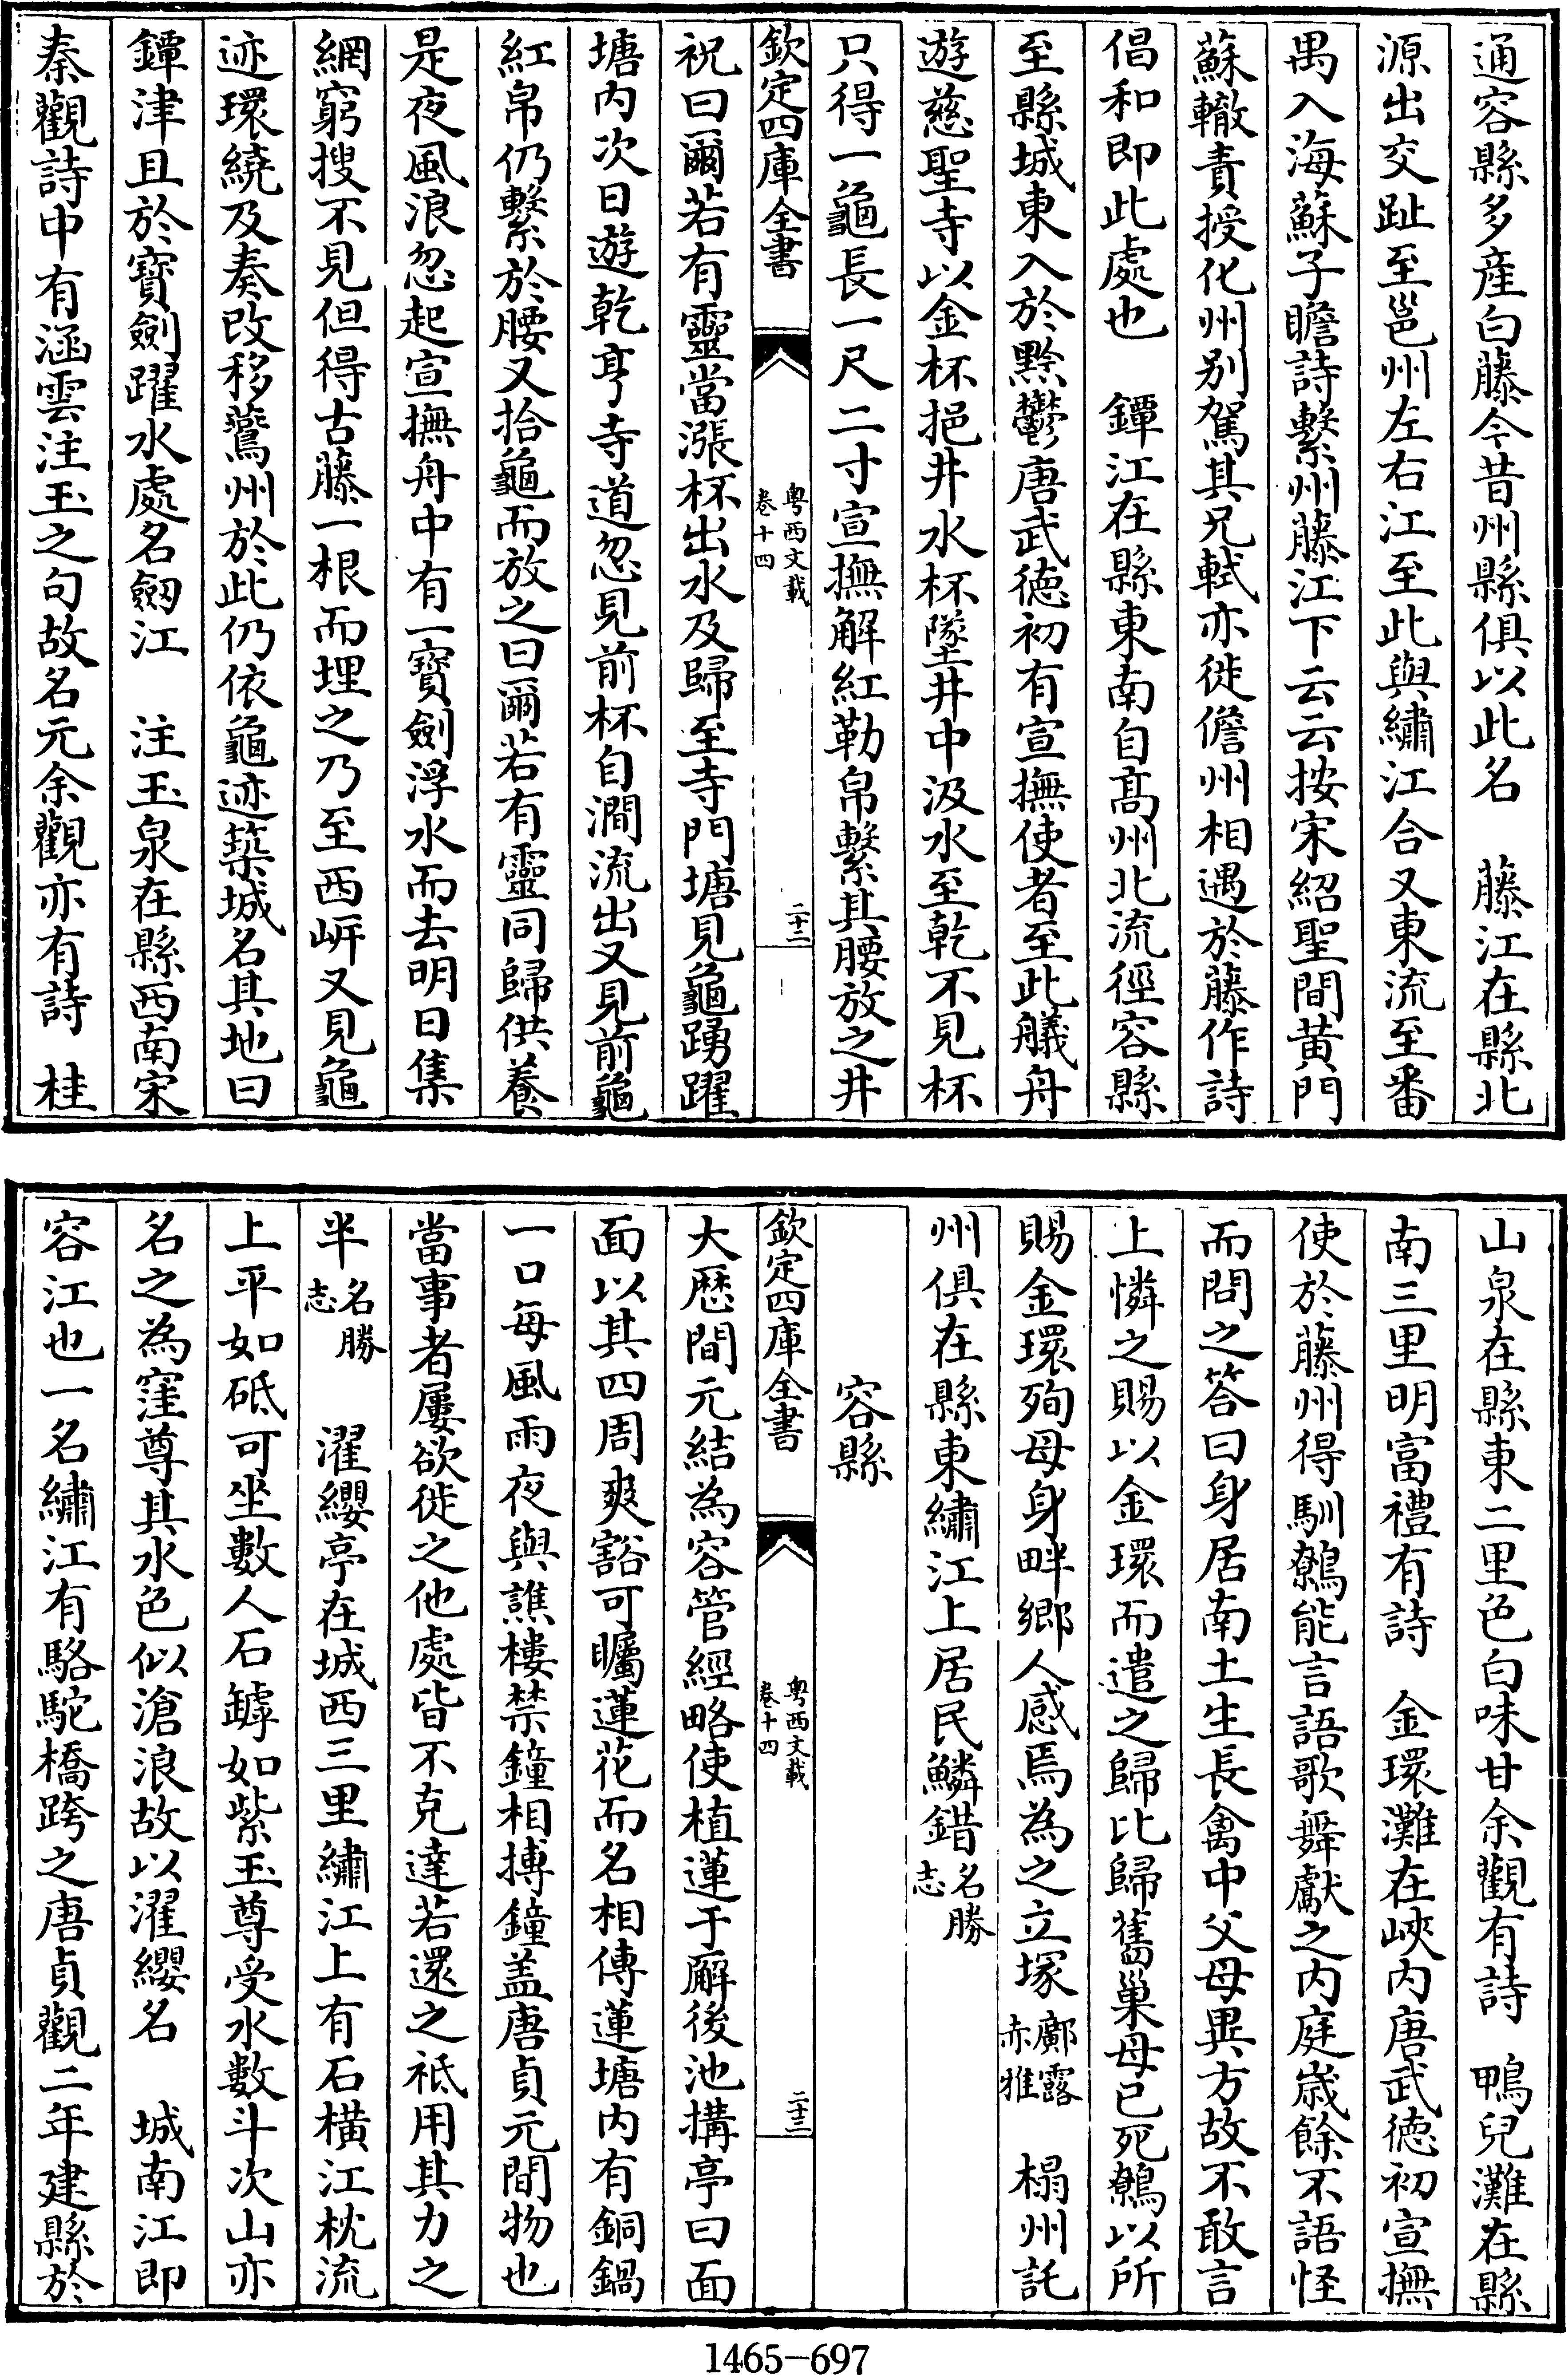 通容縣多産白藤今昔州縣俱以此名　藤江在縣北
源出交趾至邕州左右江至此與繡江合又東流至番
禺入海蘇子瞻詩繫州藤江下云云按宋紹聖間黄門
蘇轍責授化州别駕其兄軾亦徙儋州相遇於藤作詩
倡和即此處也　鐔江在縣東南自髙州北流徑容縣
至縣城東入於黔鬱唐武徳初有宣撫使者至此艤舟
遊慈聖寺以金杯挹井水杯墜井中汲水至乾不見杯
只得一龜長一尺二寸宣撫解紅勒帛繫其腰放之井
欽定四庫全書
粤西文載
卷十四
二十二
祝曰爾若有靈當漲杯出水及歸至寺門塘見龜踴躍
塘内次日遊乾亨寺寺道忽見前杯自澗流出又見前龜
紅帛仍繫於腰又拾龜而放之曰爾若有靈同歸供養
是夜風浪忽起宣撫舟中有一寶劍浮水而去明日集
網窮搜不見但得古藤一根而埋之乃至西岍又見龜
迹環繞及奏改移鷰州於此仍依龜迹築城名其地曰
鐔津且於寶劍躍水處名劒江　注玉泉在縣西南宋
秦觀詩中有涵雲注玉之句故名元余觀亦有詩　桂
山泉在縣東二里色白味甘余觀有詩　鴨兒灘在縣
南三里明富禮有詩　金環灘在峽内唐武徳初宣撫
使於藤州得馴鷯能言語歌舞獻之内庭嵗餘不語怪
而問之答曰身居南土生長禽中父母異方故不敢言
上憐之賜以金環而遣之歸比歸舊巢母已死鷯以所
賜金環殉母身畔鄉人感焉為之立塚鄺露赤雅　榻州託
州俱在縣東繡江上居民鱗錯名勝志
容縣
欽定四庫全書
粤西文載
卷十四
二十三
大厯間元結為容管經略使植蓮于廨後池搆亭曰面
面以其四周爽豁可矚蓮花而名相傳蓮塘内有銅鍋
一口每風雨夜與譙樓禁鐘相搏鐘盖唐貞元間物也
當事者屢欲徙之他處皆不克達若還之祗用其力之
半名勝志　濯纓亭在城西三里繡江上有石橫江枕流
上平如砥可坐數人石罅如紫玉尊受水數斗次山亦
名之為窪尊其水色似滄浪故以濯纓名　城南江即
容江也一名繡江有駱駝橋跨之唐貞觀二年建縣於
1465-697